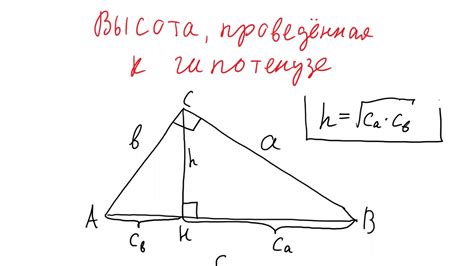 Высота, проведённая
к гипотенузе
C
h = √ca·cв
в
a
h
A
H
B
cв
ca
c